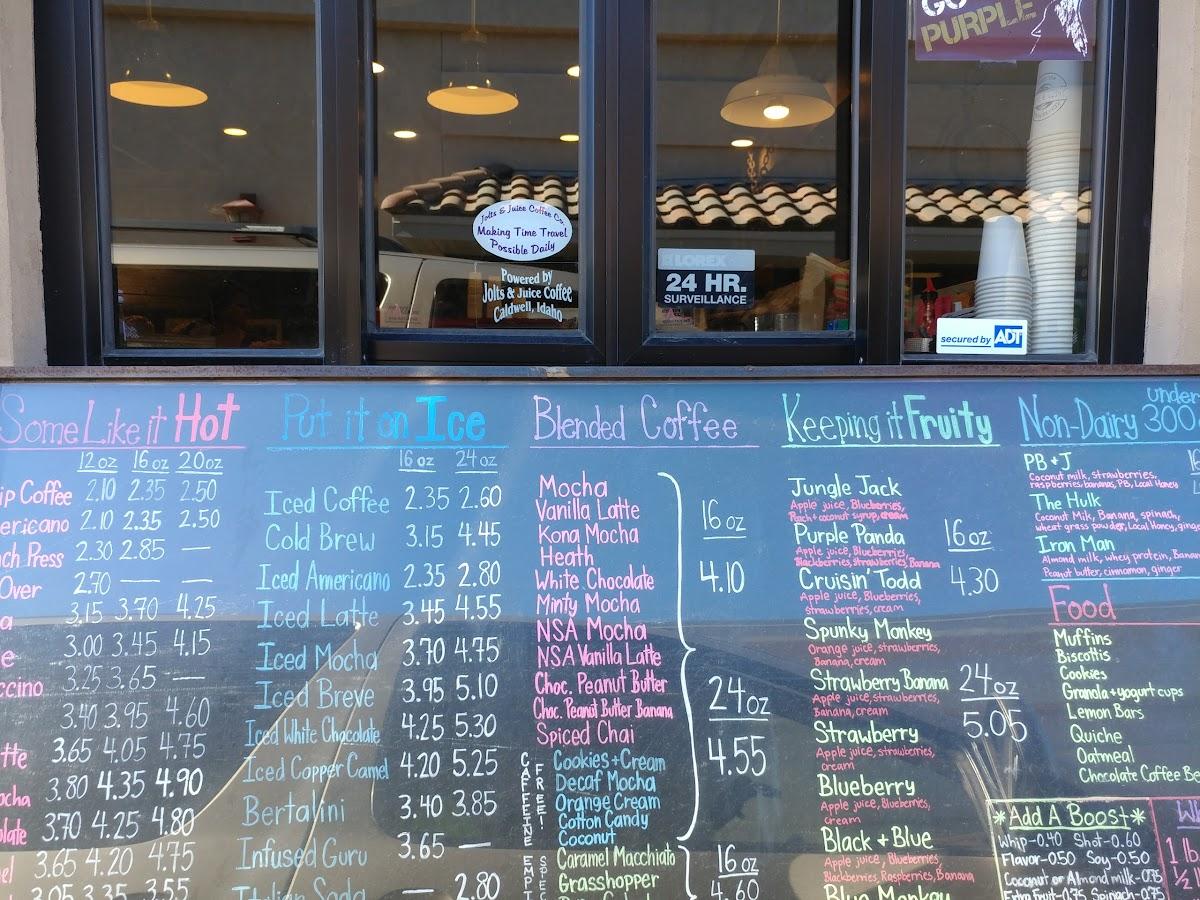 GO
PURPLE
Jolts & Juice Coffee Co.
Making Time Travel
Possible Daily
Powered by
Jolts & Juice Coffee
Caldwell, Idaho
LOREX
24 HR.
SURVEILLANCE
secured by ADT
Some Like it Hot
12 oz 16 oz 20 oz
ip Coffee 2.10 2.35 2.50
ericano 2.10 2.35 2.50
ch Press 2.30 2.85 —
Over 2.70 — —
a 3.15 3.70 4.25
e 3.00 3.45 4.15
ccino 3.25 3.65 —
3.40 3.95 4.60
tte 3.65 4.05 4.75
ocha 3.80 4.35 4.90
olate 3.70 4.25 4.80
el 3.65 4.20 4.75
3.05 3.35 3.55
Put it on Ice
16 oz 24 oz
Iced Coffee 2.35 2.60
Cold Brew 3.15 4.45
Iced Americano 2.35 2.80
Iced Latte 3.45 4.55
Iced Mocha 3.70 4.75
Iced Breve 3.95 5.10
Iced White Chocolate 4.25 5.30
Iced Copper Camel 4.20 5.25
Bertalini 3.40 3.85
Infused Guru 3.65 —
Italian Soda — 2.80
Blended Coffee
Mocha
Vanilla Latte
Kona Mocha
Heath
White Chocolate
Minty Mocha
NSA Mocha
NSA Vanilla Latte
Choc. Peanut Butter
Choc. Peanut Butter Banana
Spiced Chai
CAFFEINE FREE!
Cookies + Cream
Decaf Mocha
Orange Cream
Cotton Candy
Coconut
Caramel Macchiato
Grasshopper
16 oz
4.10
24 oz
4.55
16 oz
4.60
Keeping it Fruity
Jungle Jack
Apple juice, Blueberries,
Peach + coconut syrup, cream
Purple Panda
Apple juice, Blueberries,
Blackberries, strawberries, Banana
Cruisin' Todd
Apple juice, Blueberries,
strawberries, cream
Spunky Monkey
Orange juice, strawberries,
Banana, cream
Strawberry Banana
Apple juice, strawberries,
Banana, cream
Strawberry
Apple juice, strawberries,
cream
Blueberry
Apple juice, Blueberries,
cream
Black + Blue
Apple juice, Blueberries,
Blackberries, Raspberries, Banana
Blue Monkey
16 oz
4.30
24 oz
5.05
Non-Dairy under 300
PB + J
Coconut milk, strawberries,
raspberries, bananas, PB, Local Honey
The Hulk
Coconut Milk, Banana, spinach,
wheat grass powder, Local Honey, ginge
Iron Man
Almond milk, whey protein, Banan
Peanut butter, cinnamon, ginger
Food
Muffins
Biscottis
Cookies
Granola + yogurt cups
Lemon Bars
Quiche
Oatmeal
Chocolate Coffee Be
*Add A Boost*
Whip-0.40 Shot-0.60
Flavor-0.50 Soy-0.50
Coconut or Almond milk-0.75
Extra Fruit-0.75 Spinach-0.75
1 lb
1/2 l